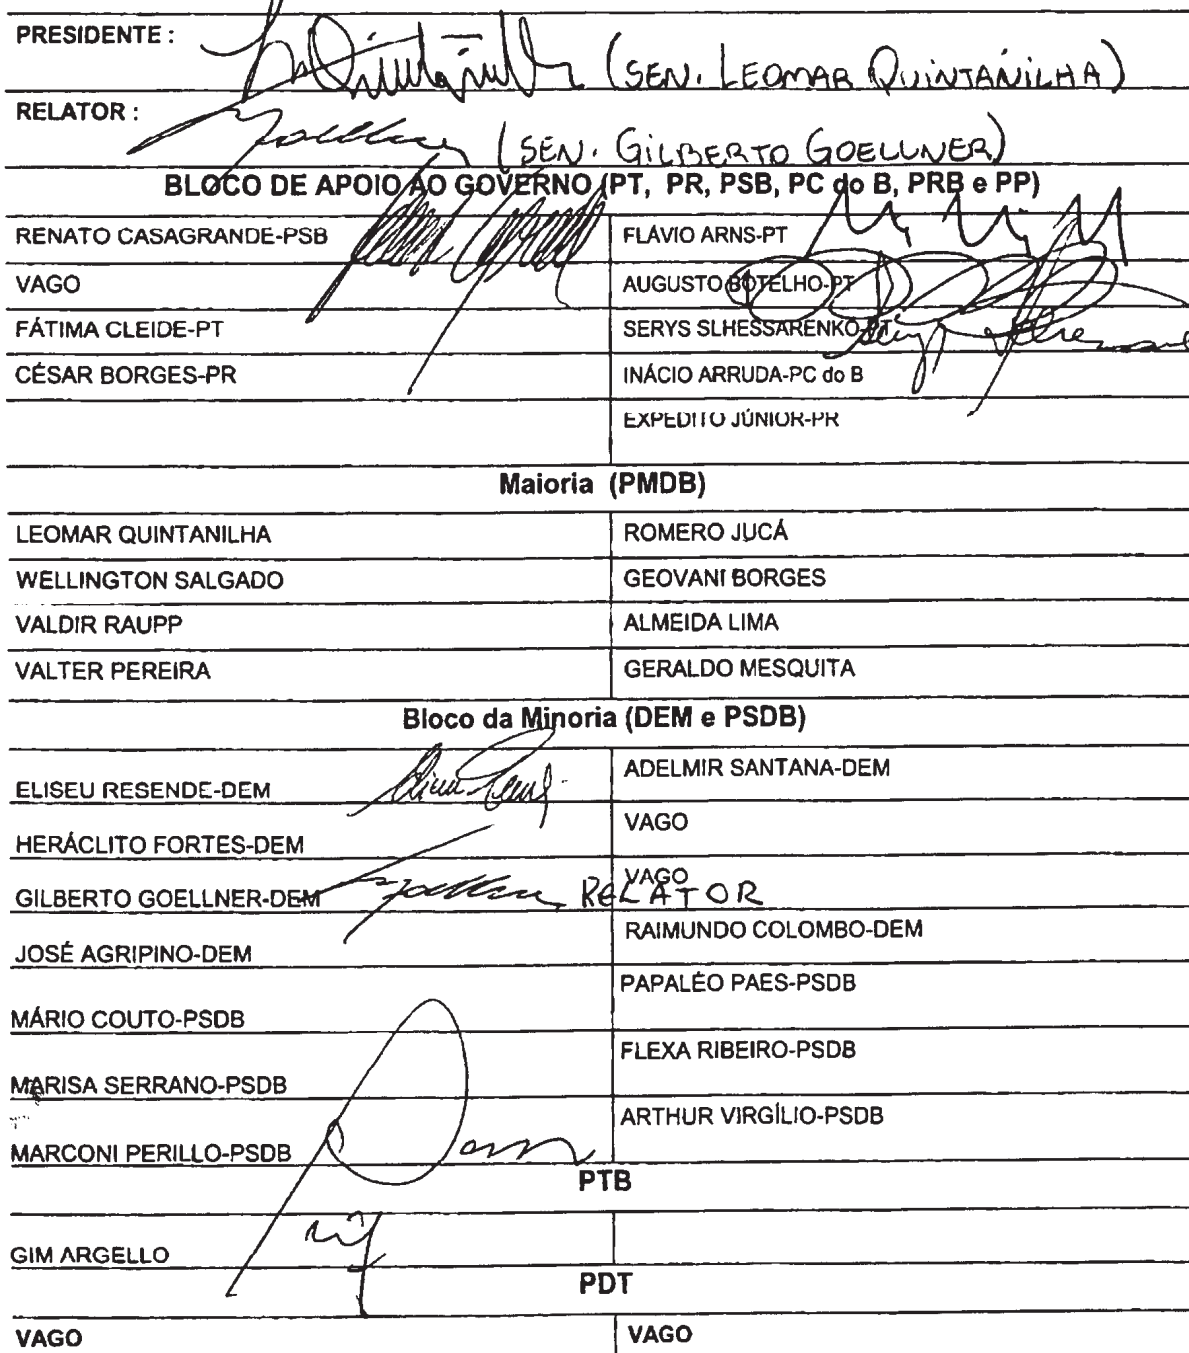 PRESIDENTE :
(SEN. LEOMAR QUINTANILHA)
RELATOR :
(SEN. GILBERTO GOELLNER)
BLOCO DE APOIO AO GOVERNO (PT, PR, PSB, PC do B, PRB e PP)
RENATO CASAGRANDE-PSB
FLÁVIO ARNS-PT
VAGO
AUGUSTO BOTELHO-PT
FÁTIMA CLEIDE-PT
SERYS SLHESSARENKO-PT
CÉSAR BORGES-PR
INÁCIO ARRUDA-PC do B
EXPEDITO JÚNIOR-PR
Maioria (PMDB)
LEOMAR QUINTANILHA
ROMERO JUCÁ
WELLINGTON SALGADO
GEOVANI BORGES
VALDIR RAUPP
ALMEIDA LIMA
VALTER PEREIRA
GERALDO MESQUITA
Bloco da Minoria (DEM e PSDB)
ELISEU RESENDE-DEM
ADELMIR SANTANA-DEM
HERÁCLITO FORTES-DEM
VAGO
GILBERTO GOELLNER-DEM
RELATOR
VAGO
JOSÉ AGRIPINO-DEM
RAIMUNDO COLOMBO-DEM
MÁRIO COUTO-PSDB
PAPALÉO PAES-PSDB
MARISA SERRANO-PSDB
FLEXA RIBEIRO-PSDB
MARCONI PERILLO-PSDB
ARTHUR VIRGÍLIO-PSDB
PTB
GIM ARGELLO
PDT
VAGO
VAGO